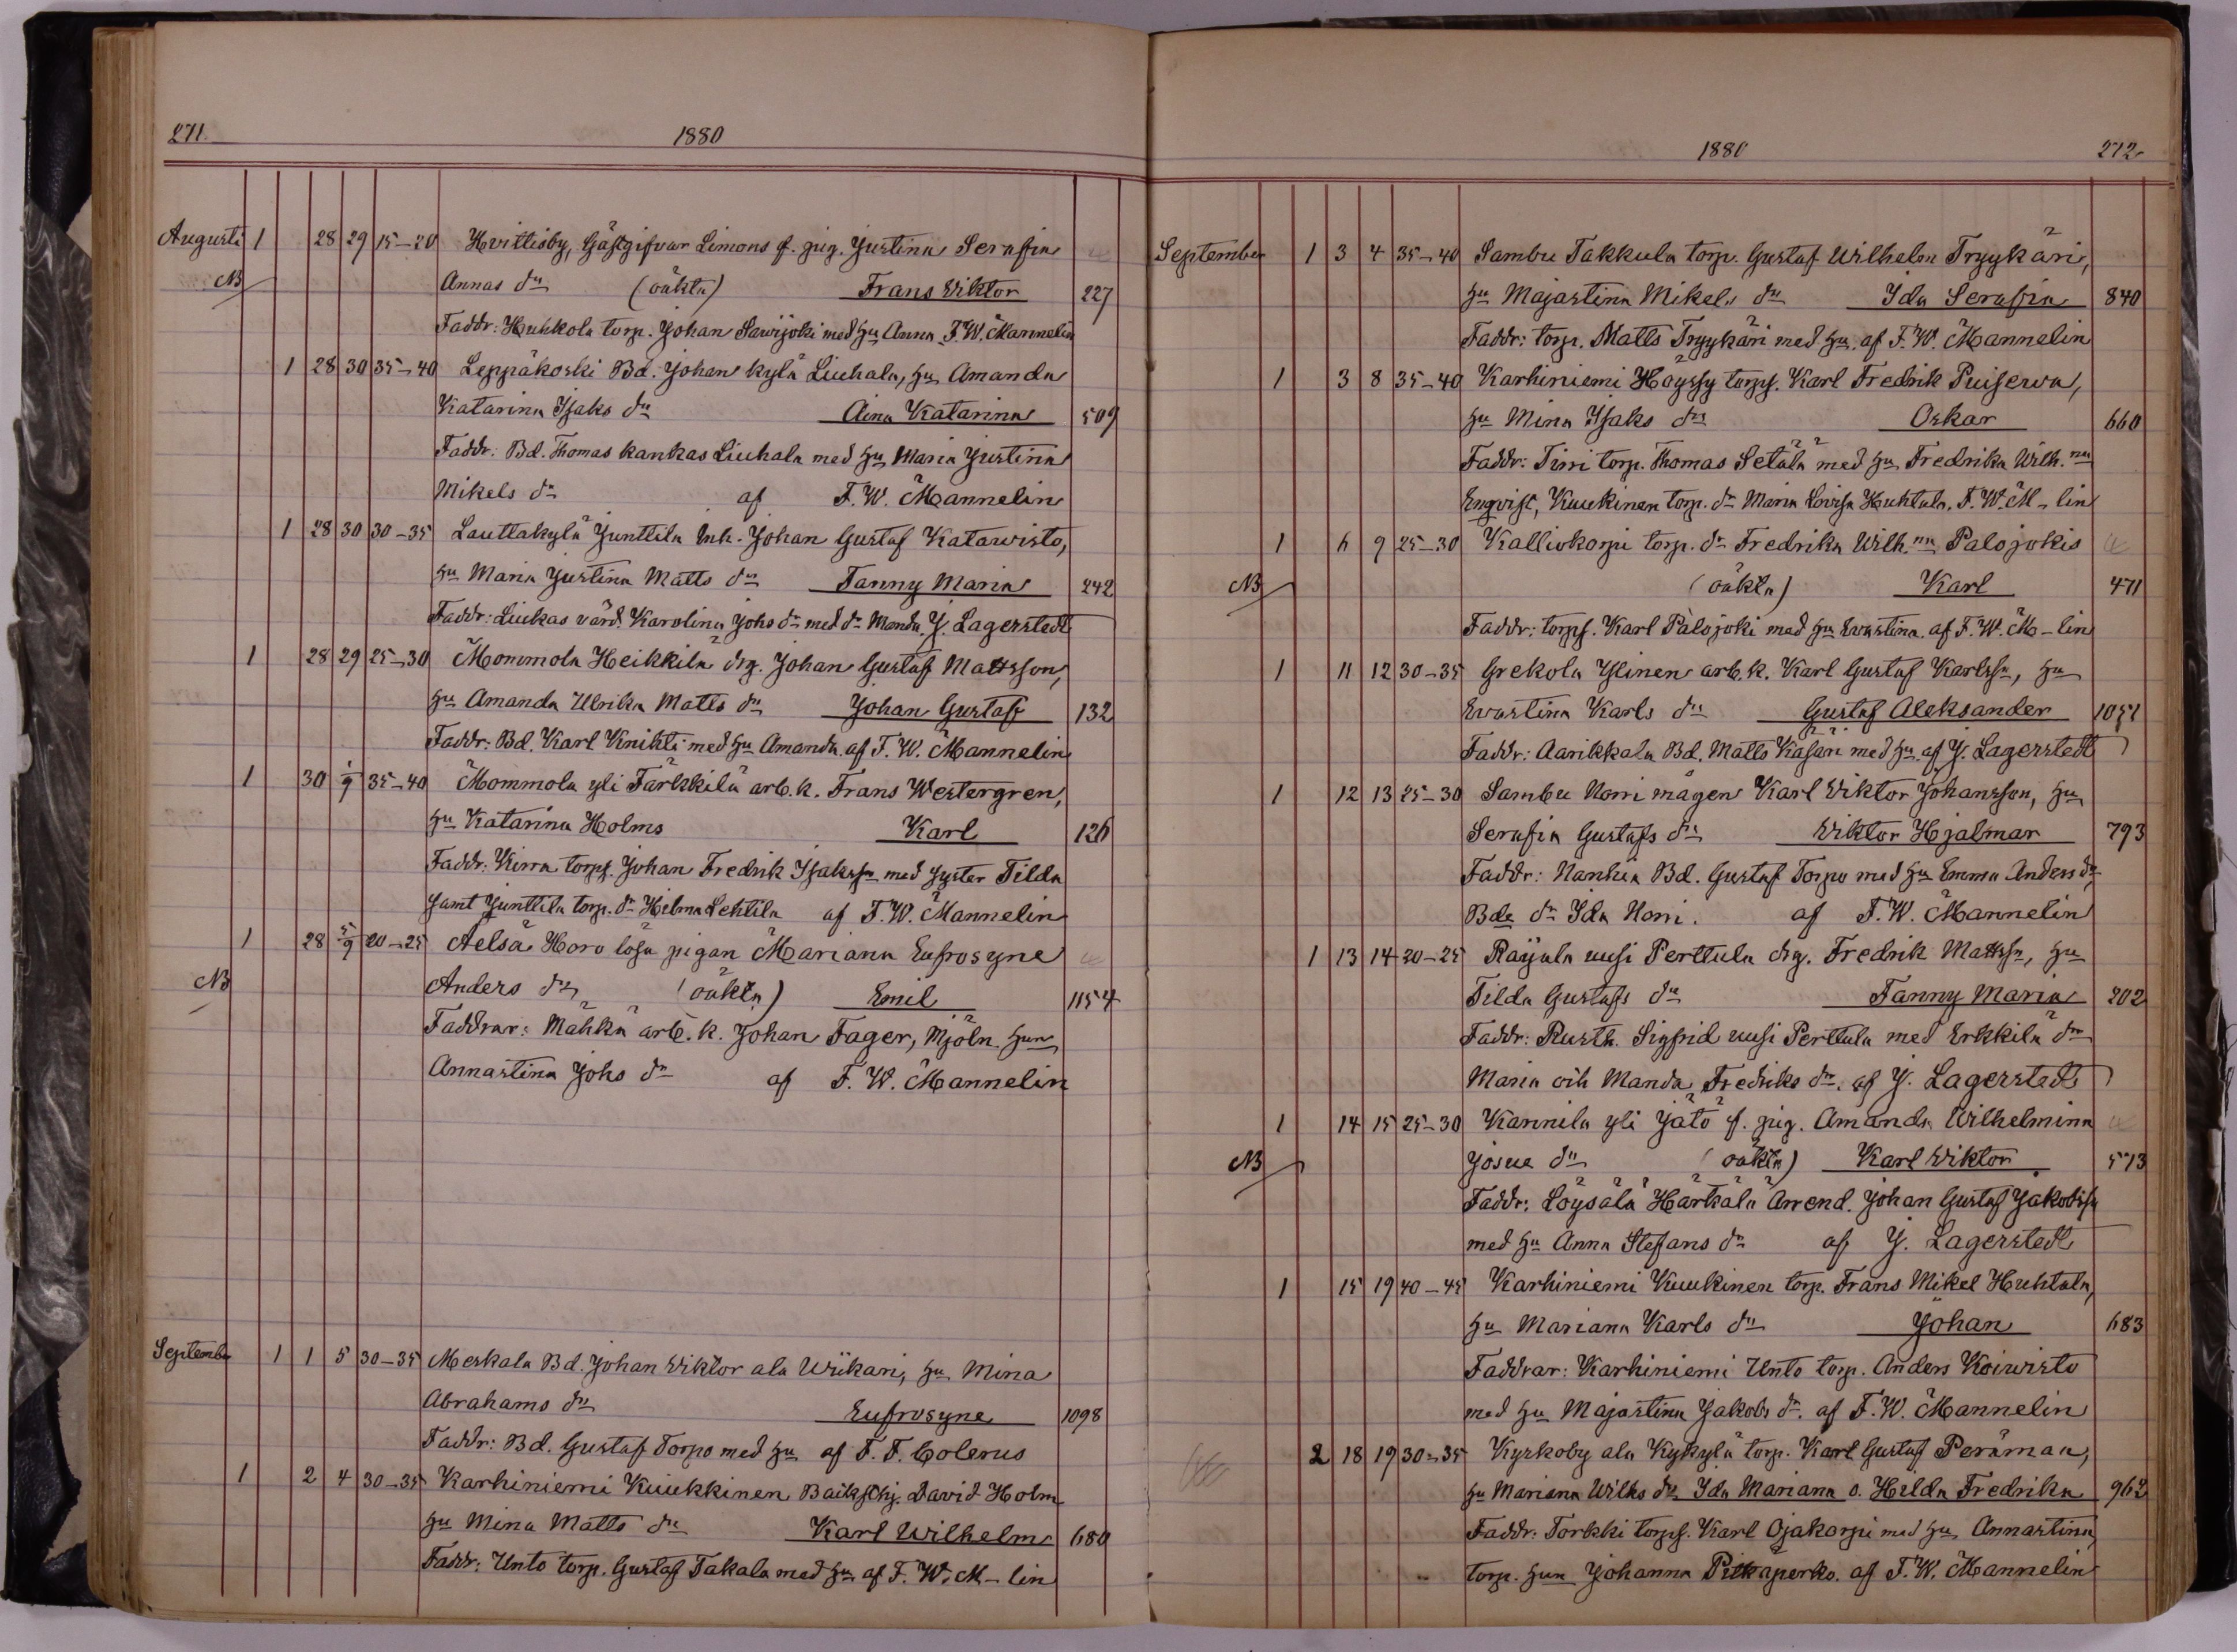 271. 1880
Augusti 1 28 29 15-20 Hvittisby, Gästgifvar Simons f. pig. Justina Serafia
NB Annas dr (oäkta) Frans Viktor 227
Faddr: Huhkola torp. Johan Sawijoki med hu Anna. F.W. Mannelin
1 28 30 35-40 Leppäkoski Bd. Johan kylä Liuhala, hu Amanda
Katarina Isaks dr Aina Katarina 509
Faddr: Bd. Thomas kankas Liuhala med hu Maria Justina
Mikels dr af F.W. Mannelin
1 28 30 30-35 Lauttakylä Junttila Inh. Johan Gustaf Katawisto,
hu Maria Justina Matts dr Fanny Maria 242
Faddr: Luikas värd. Karolina Johs dr med dr Manda. J. Lagerstedt
1 28 29 25-30 Mommola Heikkilä drg. Johan Gustaf Mattsson,
hu Amanda Ulrika Matts dr Johan Gustaf 132
Faddr: Bd. Karl Knihti med hu Amanda af F.W. Mannelin
1 30 1/9 35-40 Mommola yli Färkkilä arb.k. Frans Westergren,
hu Katarina Holms Karl 126
Faddr: Kirra torps. Johan Fredrik Isakssn med syster Tilda
samt Junttila torp. dr Hilma Lehtila af F.W. Mannelin
1 28 5/9 20-25 Aelsä Horo lösa pigan Mariana Eufrosyne
NB Anders dr (oäkta) Emil 1154
Faddrar: Mahkä arb.k. Johan Fager, Mjöln. hun
Annastina Johs dr af F.W. Mannelin
September 1 1 5 30-35 Meskala Bd. Johan Viktor ala Wiikari, hu Mina
Abrahams dr Eufrosyne 1098
Faddr: Bd. Gustaf Torpo med hu af F.F. Colerus
1 2 4 30-35 Karhiniemi Kuukkinen Backsthj. David Holm
hu Mina Matts dr Karl Wilhelm 680
Faddr: Unto torp. Gustaf Takala med hu af F.W. M-lin
1880 272
September 1 3 4 35-40 Sambu Takkula torp. Gustaf Wilhelm Tryykäri,
hu Majastina Mikels dr Ida Serafia 840
Faddr: torp. Matts Tryykäri med hu. af F.W. Mannelin
1 3 8 35-40 Karhiniemi Höyssy torps. Karl Fredrik Puiserva,
hu Mina Isaks dr Oskar 660
Faddr: Tirri torp. Thomas Setälä med hu Fredrika Wilh.na
Engvist, Kuukinen torp. dr Maria Lovisa Huhtala, F.W. M-lin
1 6 9 25-30 Kalliokorpi torp. dr Fredrika Wilh.na Palojokis
NB (oäkta) Karl 471
Faddr: torps. Karl Palojoki med hu Ewastina. af F.W. M-lin
1 11 12 30-35 Grekola Ylinen arb.k. Karl Gustaf Karlssn, hu
Ewastina Karls dr Gustaf Aleksander 1051
Faddr: Aarikkala Bd. Matts Kasari med hu af J. Lagerstedt
1 12 13 25-30 Sambu Norri mågen Karl Viktor Johansson, hu
Serafia Gustafs dr Viktor Hjalmar 793
Faddr: Nanhia Bd. Gustaf Torpo med hu Emma Anders dr
Bde dr Ida Norri. af F.W. Mannelin
1 13 14 20-25 Raijala uusi Perttula drg. Fredrik Mattssn, hu
Tilda Gustafs dr Fanny Maria 202
Faddr: Rusth. Sigfrid uusi Perttula med Erkkilä dr
Maria och Manda Fredriks dr. af J. Lagerstedt
1 14 15 25-30 Kannila yli Jätö f. pig. Amanda Wilhelmina
NB Josua dr (oäkta) Karl Viktor 573
Faddr: Löysälä Härkälä Arrend. Johan Gustaf Jakobssn
med hu Anna Stefans dr af J. Lagerstedt
1 15 19 40-45 Karhiniemi Kuukinen torp. Frans Mikel Huhtala,
hu Mariana Karls dr Johan 683
Faddrar: Karhiniemi Unto torp. Anders Koiwisto
med hu Majastina Jakobs dr. af F.W. Mannelin
2 18 19 30-35 Kyrkoby ala Kykylä torp. Karl Gustaf Peräman,
hu Mariana Wilhs dr Ida Mariana o. Hilda Fredrika 962
Faddr: Torkki torps. Karl Ojakorpi med hu Annastina
torp. hun Johanna Pitkäperko. af F.W. Mannelin